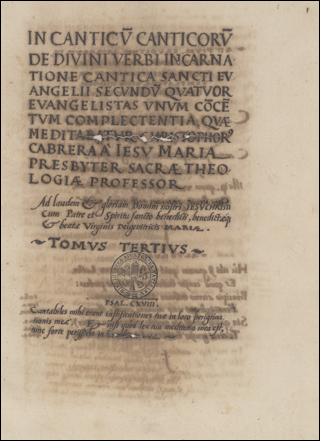 IN CANTICŪ CANTICORŪ
DE DIVINI VERBI INCARNA
TIONE CANTICA SANCTI EV
ANGELII SECUNDŪ QVATVOR
EVANGELISTAS VNVM CŌCĒ
TVM COMPLECTENTIA, QVÆ
MEDITABATVR CHRISTOPHORꝰ
CABRERA A' IESV MARIA
PRÆSBYTER SACRÆ THEO
LOGIÆ PROFESSOR
Ad laudem & gloriam Domini nostri IESV CHRISTI
Cum Patre et Spiritu sancto benedicti,
& beatæ Virginis Deigenitricis MARIÆ.
~TOMVS TERTIVS~
PSAL. CXVIII.
Cantabiles mihi erant iustificationes tuæ in loco peregrina
tionis meæ. Et nisi quod lex tua meditatio mea est,
tunc forte